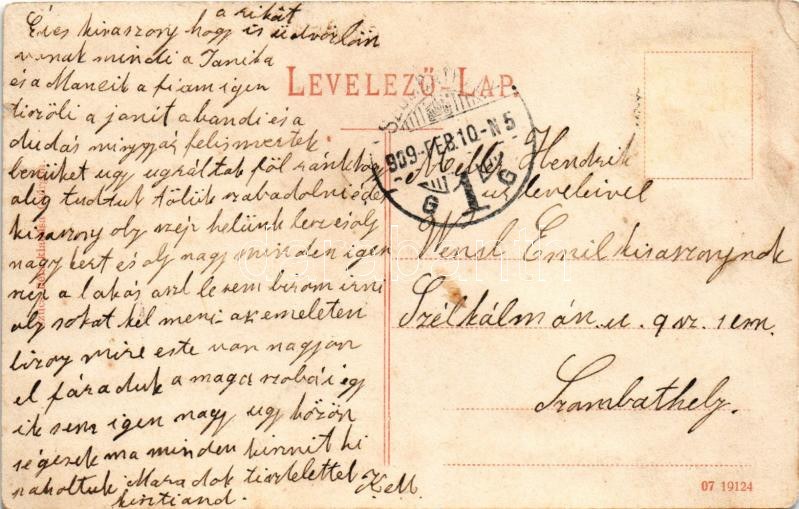 a rikát
Édes kisaszony hogy is üdvözlöin
vanak mindi a Janika
és a Maneik a fiam igen
tiszöli a janit a bandi és a
dudás mingyár felismertek
benüket ugy ugráltak föl ránk hogy
alig tudtuk tölük szabadolni édes
kisaszony oly szép helünk lesz és olj
nagy kert és olj nagy minden igen
nép a lakás azt le sem birom irni
oly sokat kel meni az emeleten
bizoy mire este van nagyon
el fáraduk a maga szobái egy
ik sem igen nagy ugy közön
ségesek ma minden kinnit ki
rakoltuk Maradok tisztelettel Kell
krisztiand.
LEVELEZŐ-LAP
909-FEB.10-N5
1
G G
Hendrik
ur leveleivel
Venzl Emil kisaszonynak
Szélkálmán u. 9 sz. 1 em.
Szombathely.
07 19124